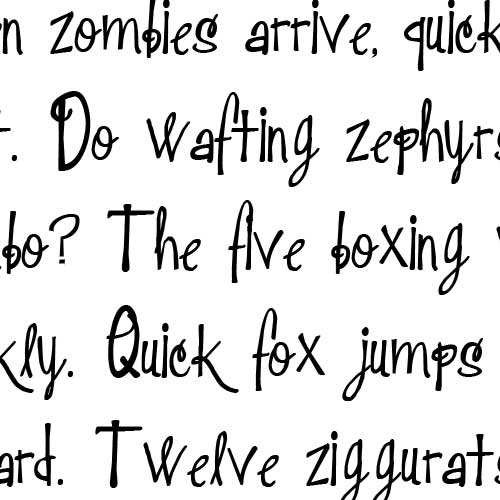 n zombies arrive, quick
. Do wafting zephyrs
bo? The five boxing
kly. Quick fox jumps
ard. Twelve ziggurats